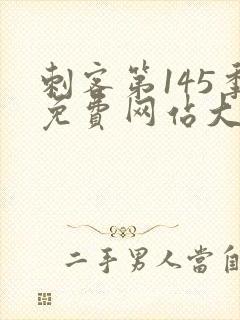 刺客第145季
免費网佔大
二手男人當自